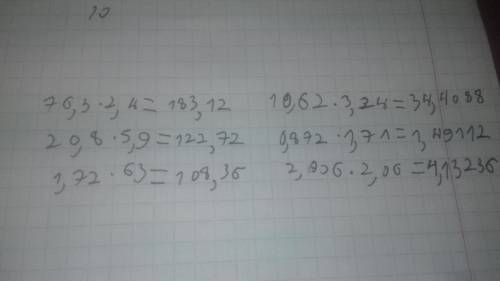 10
76,3·2,4=183,12
20,8·5,9=122,72
1,72·63=108,36
10,62·3,24=34,4088
0,872·1,71=1,49112
2,006·2,06=4,13236